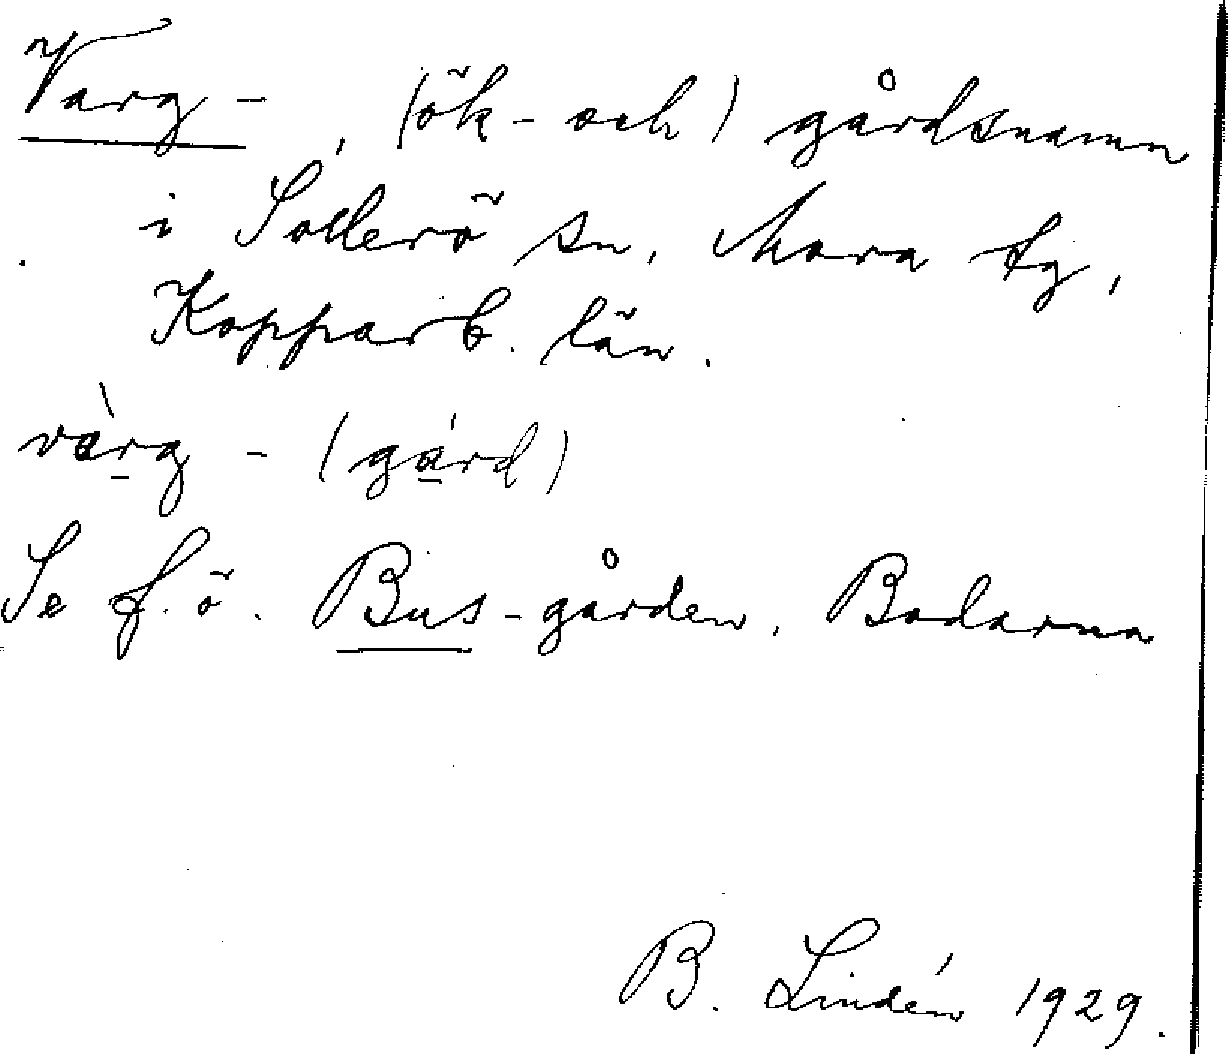 Varg-, (ök- och) gårdsnamn
i Sollerö sn, Mora tg,
Kopparb. län.
värg - (gård)
Se f. ö. Bus-gården, Bodarna
B. Lindén 1929.